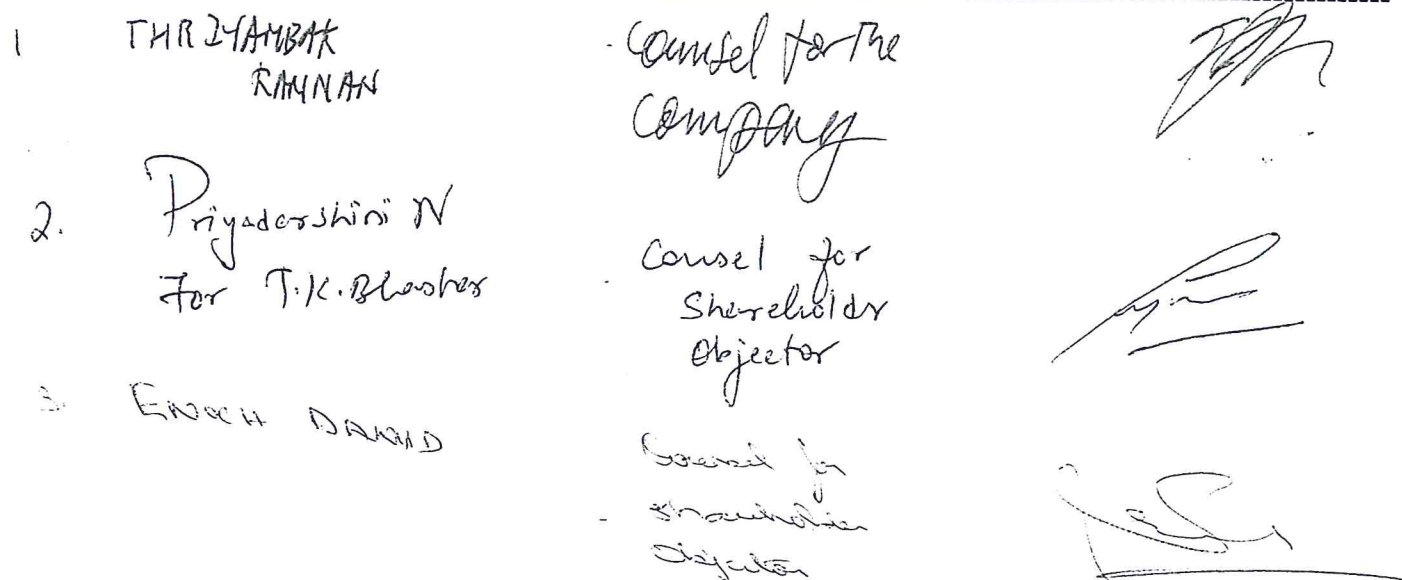 1 THRIYAMBAK
KANNAN
- Counsel for the
Company
2. Priyadarshini N
For T.K. Bhaskar
- Counsel for
Shareholder
Objector
3. ENOCH DAVID
Counsel for
- Shareholder
Objector